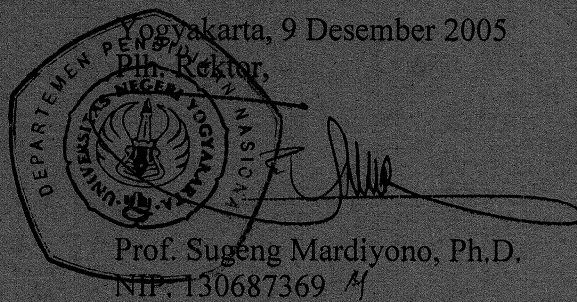 Yogyakarta, 9 Desember 2005
Plh. Rektor,
DEPARTEMEN PENDIDIKAN NASIONAL
UNIVERSITAS NEGERI YOGYAKARTA
Prof. Sugeng Mardiyono, Ph.D.
NIP. 130687369